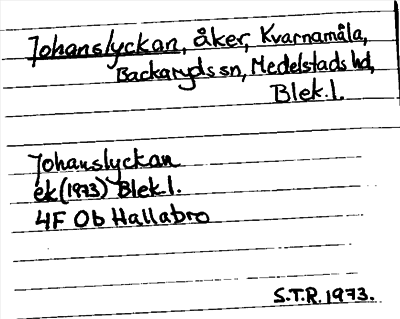 Johanslyckan, åker, Kvarnamåla,
Backaryds sn, Medelstads hd,
Blek.l.
Johanslyckan
ek (1973) Blek.l.
4F Ob Hallabro
S.T.R. 1973.